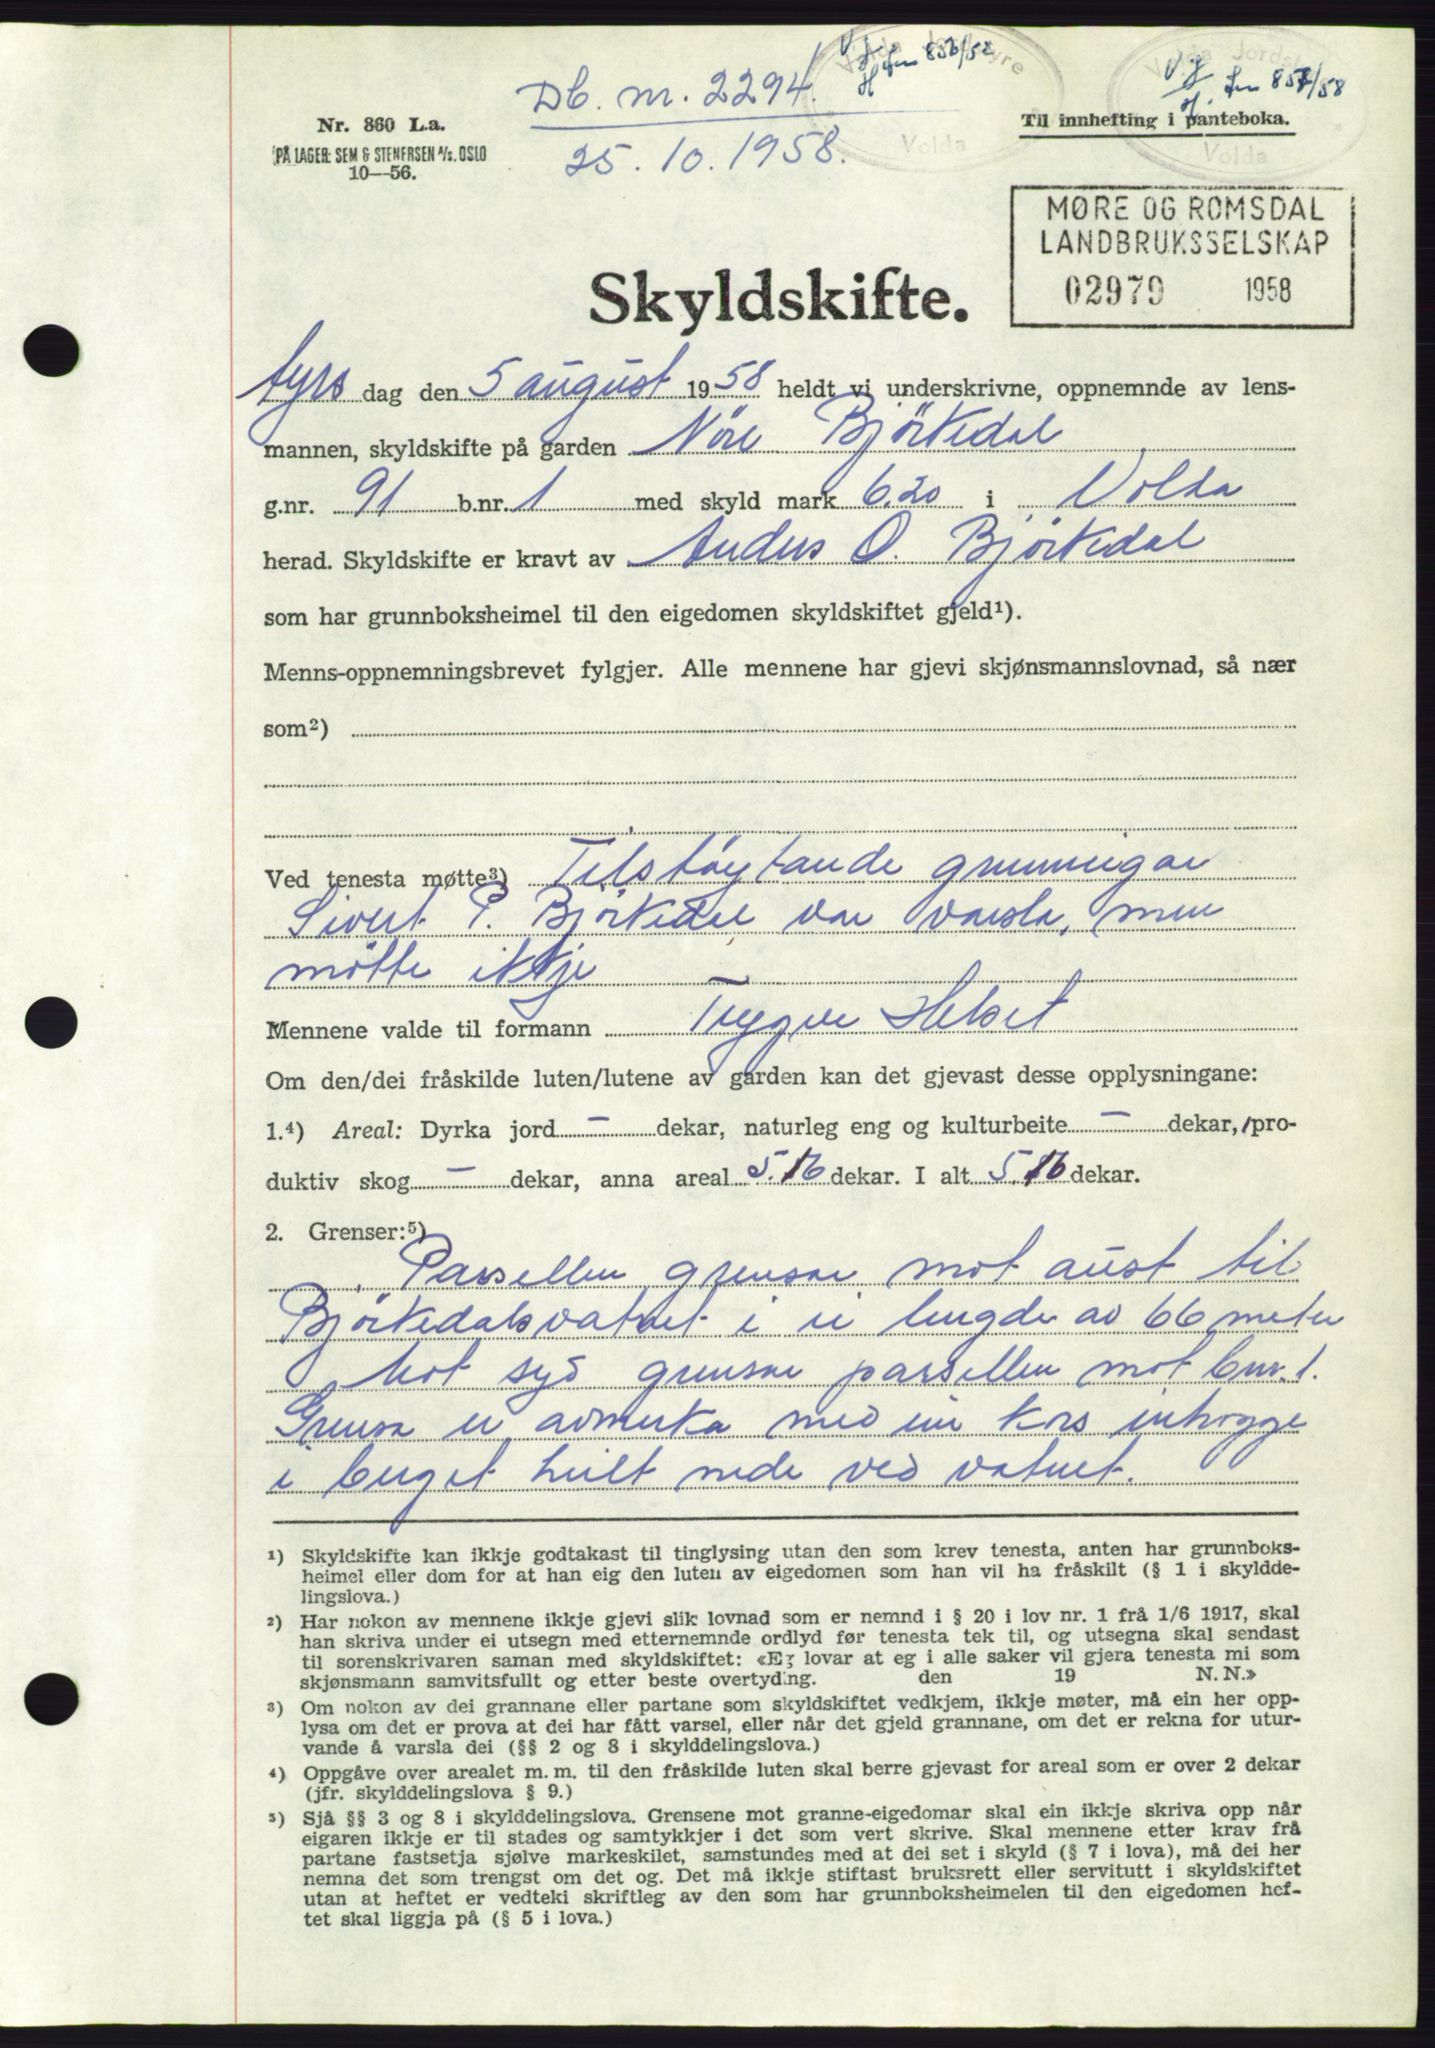 Db. nr. 2294.
25. 10. 1958.
Volda Jordstyre
Volda
V J
H. Len 856/58
Volda Jords
Volda
V J
H. Len 857/58
Nr. 360 L.a.
PÅ LAGER: SEM & STENERSEN A/S. OSLO
10—56.
Til innhefting i panteboka.
MØRE OG ROMSDAL
LANDBRUKSSELSKAP
02979 1958
Skyldskifte.
tyrs dag den 5 august 1958 heldt vi underskrivne, oppnemnde av lens-
mannen, skyldskifte på garden Nöre Björkedal
g.nr. 91 b.nr. 1 med skyld mark 6.20 i Volda
herad. Skyldskifte er kravt av Anders O. Björkedal
som har grunnboksheimel til den eigedomen skyldskiftet gjeld¹).
Menns-oppnemningsbrevet fylgjer. Alle mennene har gjevi skjønsmannslovnad, så nær
som²)
Ved tenesta møtte³) Tilstöytande grunneigar
Sivert P. Björkedal var varsla, men
mötte ikkje
Mennene valde til formann Trygve Helset
Om den/dei fråskilde luten/lutene av garden kan det gjevast desse opplysningane:
1.⁴) Areal: Dyrka jord — dekar, naturleg eng og kulturbeite — dekar, pro-
duktiv skog — dekar, anna areal 5.16 dekar. I alt 5.16 dekar.
2. Grenser:⁵)
Parsellen grensar mot aust til
Björkedalsvatnet i ei lengde av 66 meter
Mot syd grensar parsellen mot bnr. 1.
Grensa er avmerka med ein kors inhogge
i berget heilt nede ved vatnet.
¹) Skyldskifte kan ikkje godtakast til tinglysing utan den som krev tenesta, anten har grunnboks-
heimel eller dom for at han eig den luten av eigedomen som han vil ha fråskilt (§ 1 i skyldde-
lingslova.)
²) Har nokon av mennene ikkje gjevi slik lovnad som er nemnd i § 20 i lov nr. 1 frå 1/6 1917, skal
han skriva under ei utsegn med etternemnde ordlyd før tenesta tek til, og utsegna skal sendast
til sorenskrivaren saman med skyldskiftet: «Eg lovar at eg i alle saker vil gjera tenesta mi som
skjønsmann samvitsfullt og etter beste overtyding. den 19 N. N.»
³) Om nokon av dei grannane eller partane som skyldskiftet vedkjem, ikkje møter, må ein her opp-
lysa om det er prova at dei har fått varsel, eller når det gjeld grannane, om det er rekna for utur-
vande å varsla dei (§§ 2 og 8 i skylddelingslova.)
⁴) Oppgåve over arealet m. m. til den fråskilde luten skal berre gjevast for areal som er over 2 dekar
(jfr. skylddelingslova § 9.)
⁵) Sjå §§ 3 og 8 i skylddelingslova. Grensene mot granne-eigedomar skal ein ikkje skriva opp når
eigaren ikkje er til stades og samtykkjer i det som vert skrive. Skal mennene etter krav frå
partane fastsetja sjølve markeskilet, samstundes med at dei set i skyld (§ 7 i lova), må dei her
nemna det som trengst om det og. Det må ikkje stiftast bruksrett eller servitutt i skyldskiftet
utan at heftet er vedteki skriftleg av den som har grunnboksheimelen til den eigedomen hef-
tet skal liggja på (§ 5 i lova.)